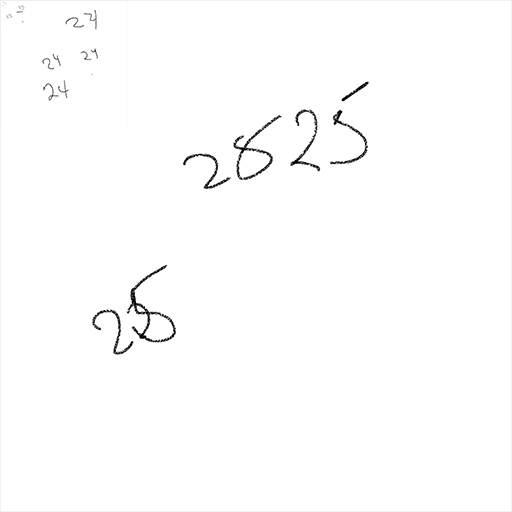 24
24 24
24
25 25
25